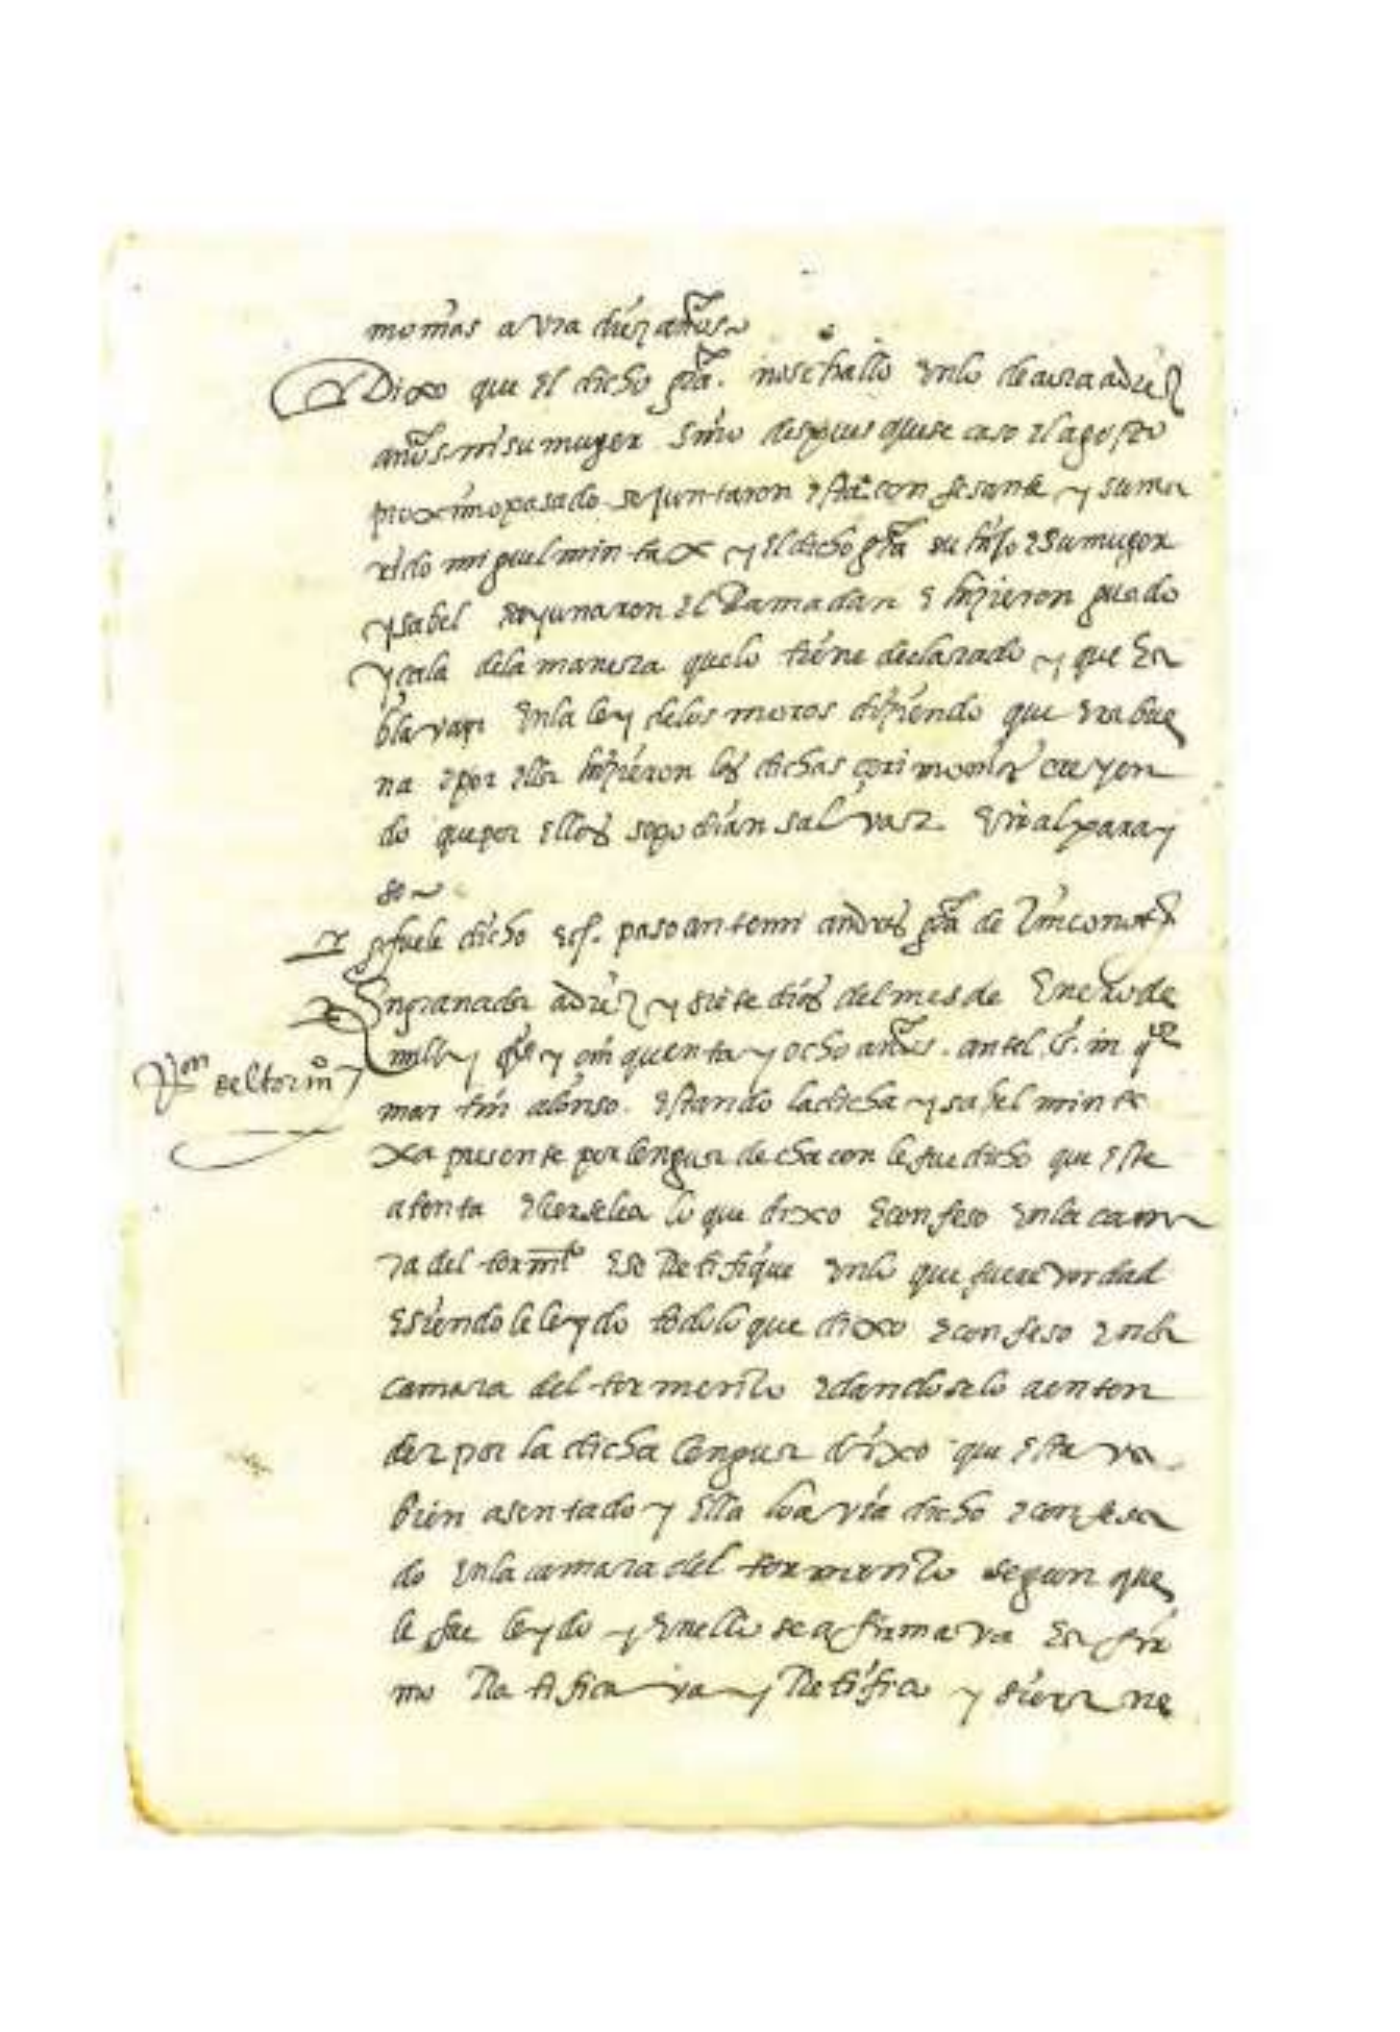 monias avra diez años
Dixo que el dicho gra. no se hallo en lo de avra diez
años ni su muger sino despues que se caso el agosto
proximo pasado se juntaron esta confesante y su ma
rido miguel mintax y el dicho gra su hijo e su muger
ysabel e ayunaron el Ramadan e hizieron guado
y cala de la manera que lo tiene declarado y que ha
blavan en la ley de los moros diziendo que era bue
na e por ellos hizieron las dichas cerimonias creyen
do que por ellas se podian salvar e ir al paray
so
fuele dicho paso ante mi andres gra de
En granada a diez y siete dias del mes de Enero de
mill y qos y cinquenta y ocho años. antel s. inqor
Ron del tormo
martin alonso. estando la dicha ysabel minta
xa presente por lengua de chacon le fue dicho que este
atenta e leersele a lo que dixo e confeso en la cama
ra del tormto e se Retifique en lo que fuere verdad
e siendole leydo todo lo que dixo e confeso en la
camara del tormento e dandoselo a enten
der por la dicha lengua dixo que estava
bien asentado y ella lo avia dicho e confesa
do en la camara del tormento segun que
le fue leydo y en ello se afirmava e afir
mo Ratificava y Retifico y si era ne